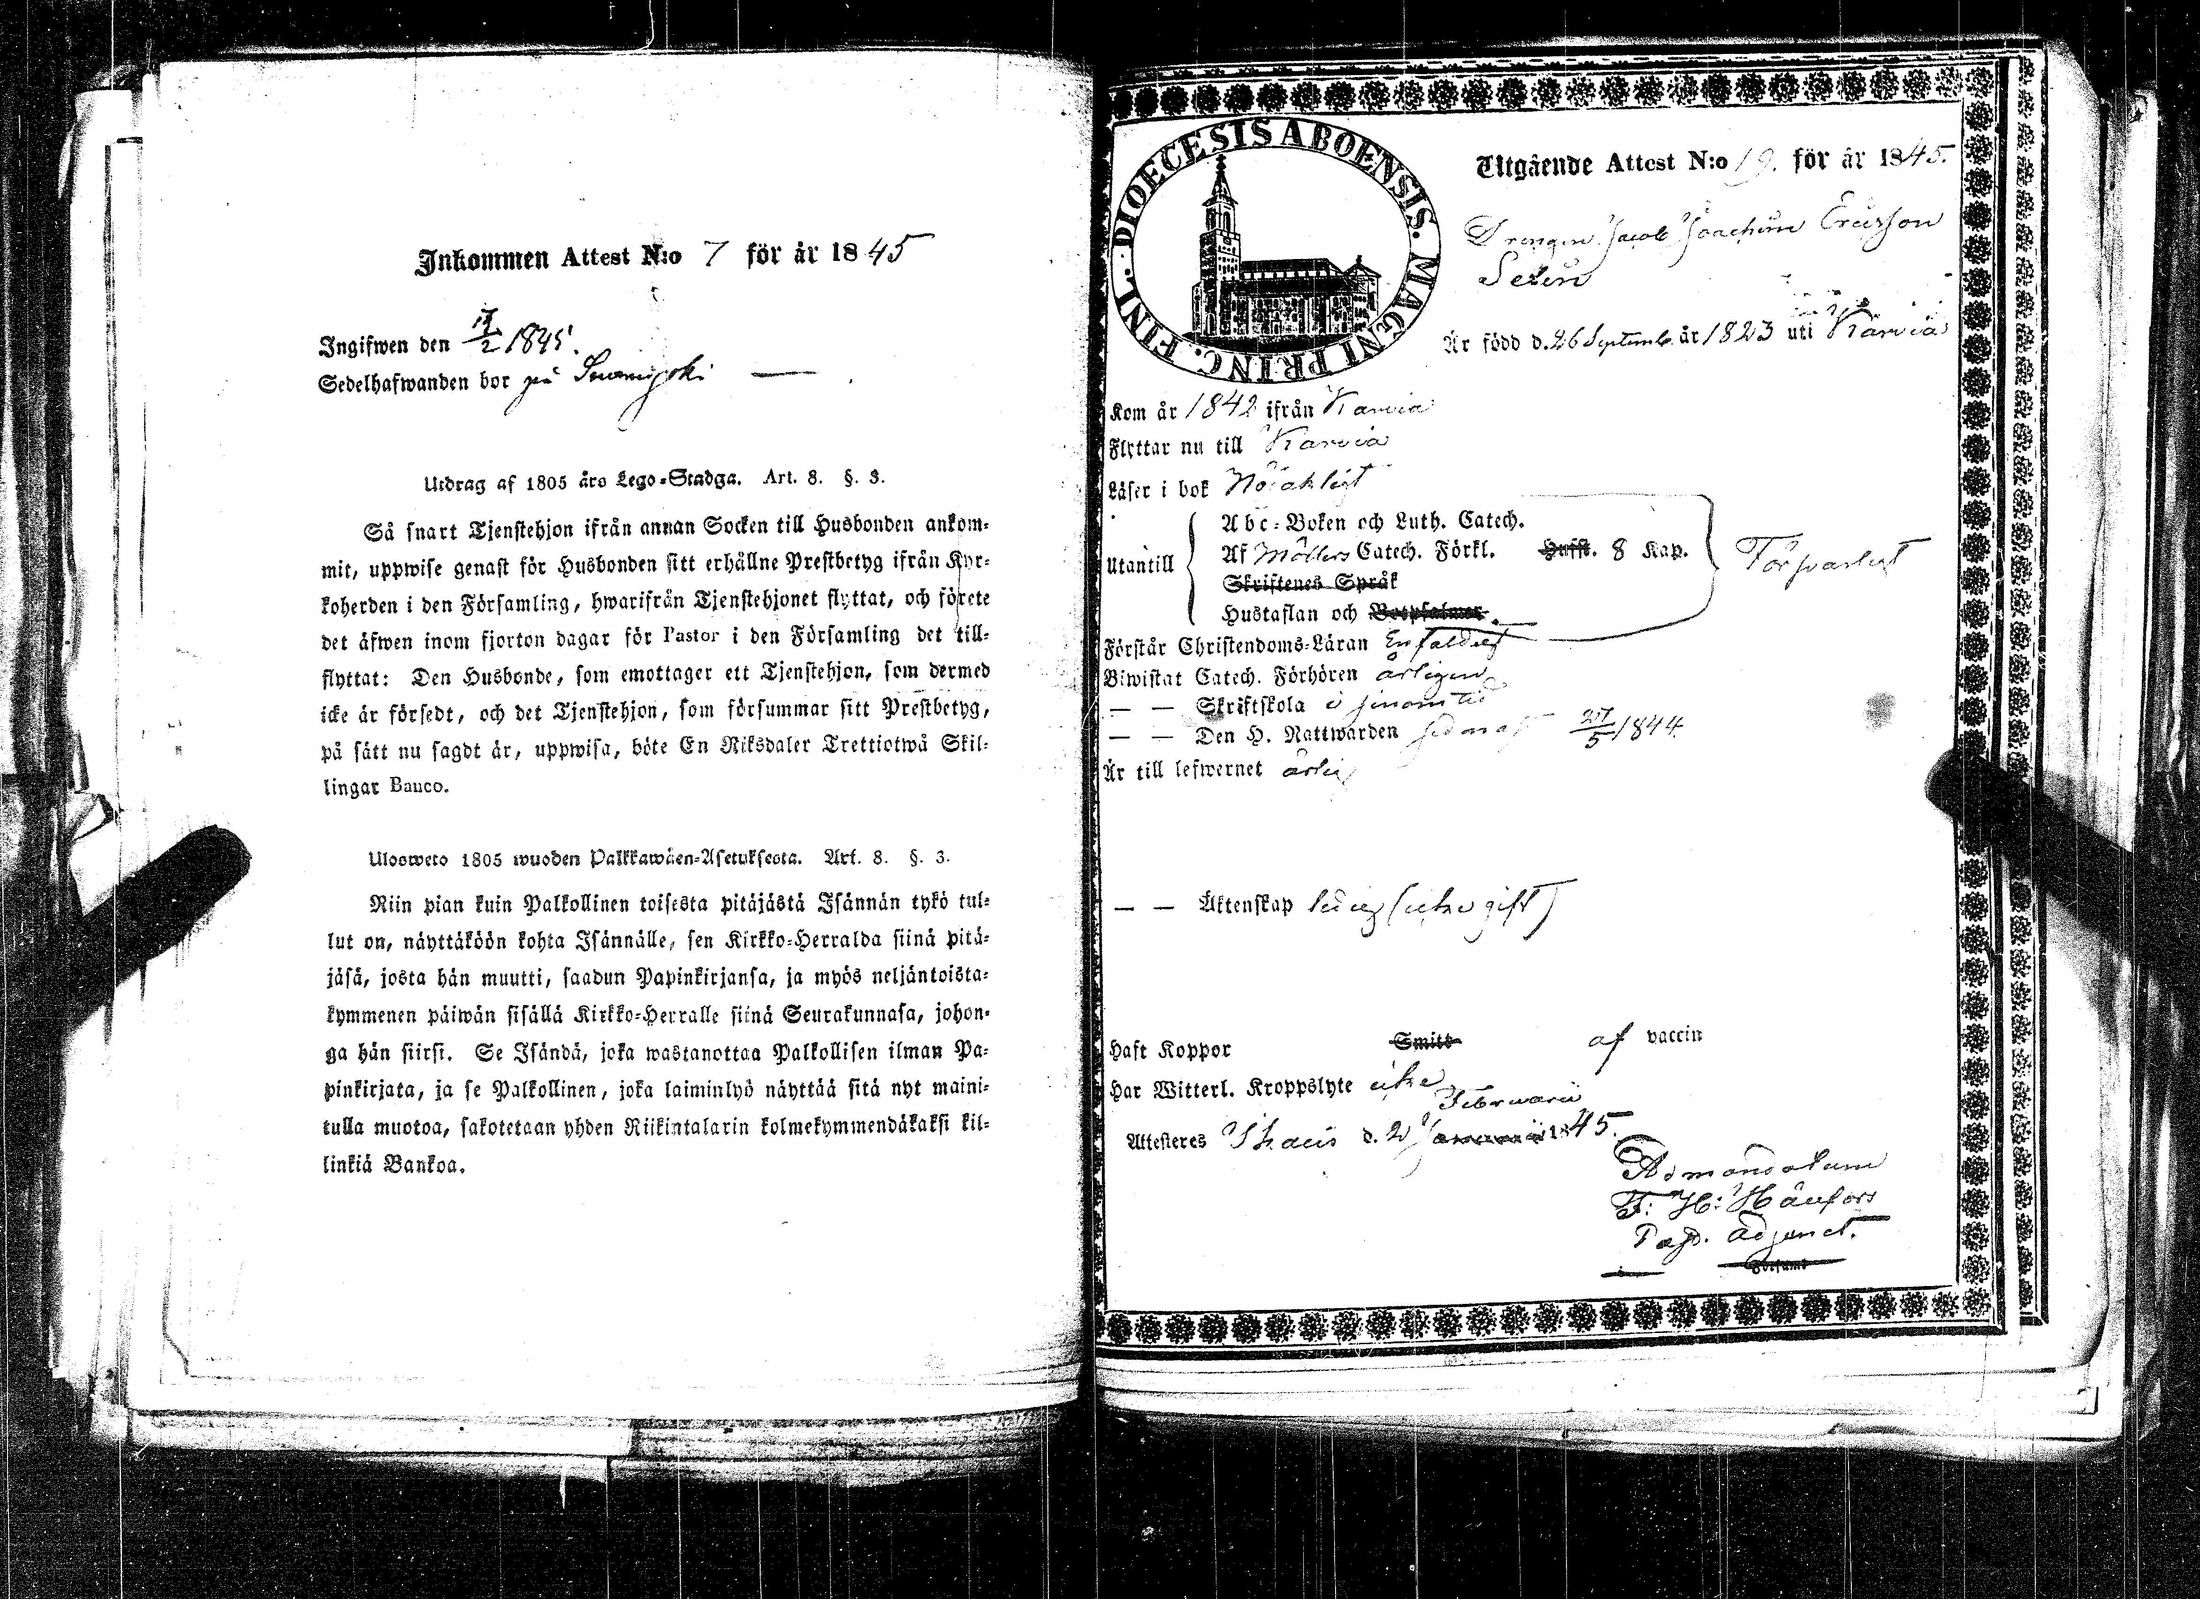 Inkommen Attest N:o 7 för år 1845
Ingifwen den 17/2 1845.
Sedelhafwanden bor på Suomijoki —
Utdrag af 1805 års Lego-Stadga. Art. 8. §. 3.
Så snart Tjenstehjon ifrån annan Socken till Husbonden ankom-
mit, uppwise genast för Husbonden sitt erhållne Prestbetyg ifrån Kyr-
koherden i den Församling, hwarifrån Tjenstehjonet flyttat, och förete
det äfwen inom fjorton dagar för Pastor i den Församling det till-
flyttat: Den Husbonde, som emottager ett Tjenstehjon, som dermed
icke är försedt, och det Tjenstehjon, som försummar sitt Prestbetyg,
på sätt nu sagdt är, uppwisa, böte En Riksdaler Trettiotwå Skil-
lingar Banco.
Ulosweto 1805 wuoden Palkkawäen-Asetuksesta. Art. 8. §. 3.
Niin pian kuin Palkollinen toisesta pitäjästä Isännän tykö tul-
lut on, näyttäköön kohta Isännälle, sen Kirkko-Herralda siinä pitä-
jäsä, josta hän muutti, saadun Papinkirjansa, ja myös neljäntoista-
kymmenen päiwän sisällä Kirkko-Herralle siinä Seurakunnasa, johon-
ga hän siirsi. Se Isändä, joka wastanottaa Palkollisen ilman Pa-
pinkirjata, ja se Palkollinen, joka laiminlyö näyttää sitä nyt maini-
tulla muotoa, sakotetaan yhden Riikintalarin kolmekymmendäkaksi kil-
linkiä Bankoa.
DIOECESIS ABOENSIS. MAGNI PRINC. FINL.
Utgående Attest N:o 19. för år 1845.
Drengen Jacob Joachim Ericsson
Selin
Är född d. 26 Septemb. år 1823 uti Karvia
Kom år 1842 ifrån Karvia
Flyttar nu till Karvia
Läser i bok Nöjaktigt
Utantill
Abc-Boken och Luth. Catech.
Af Möllers Catech. Förkl. Hufst. 8 Kap.
Skriftenes Språk
Hustaflan och Botpsalmer.
Försvarligt
Förstår Christendoms-Läran Enfaldigt
Biwistat Catech. Förhören årligen
— — Skriftskola i sinom tid
— — Den H. Nattwarden sednast 27/5 1844.
Är till lefwernet ärlig
— — Äktenskap ledig (icke gift)
Haft Koppor Smitt af vaccin
Har Witterl. Kroppslyte icke
Februarii
Attesteres Ikalis d. 2 Januarii 1845.
Ad mandatum
F: H: Hänfors
Past. Adjunct.
Församl